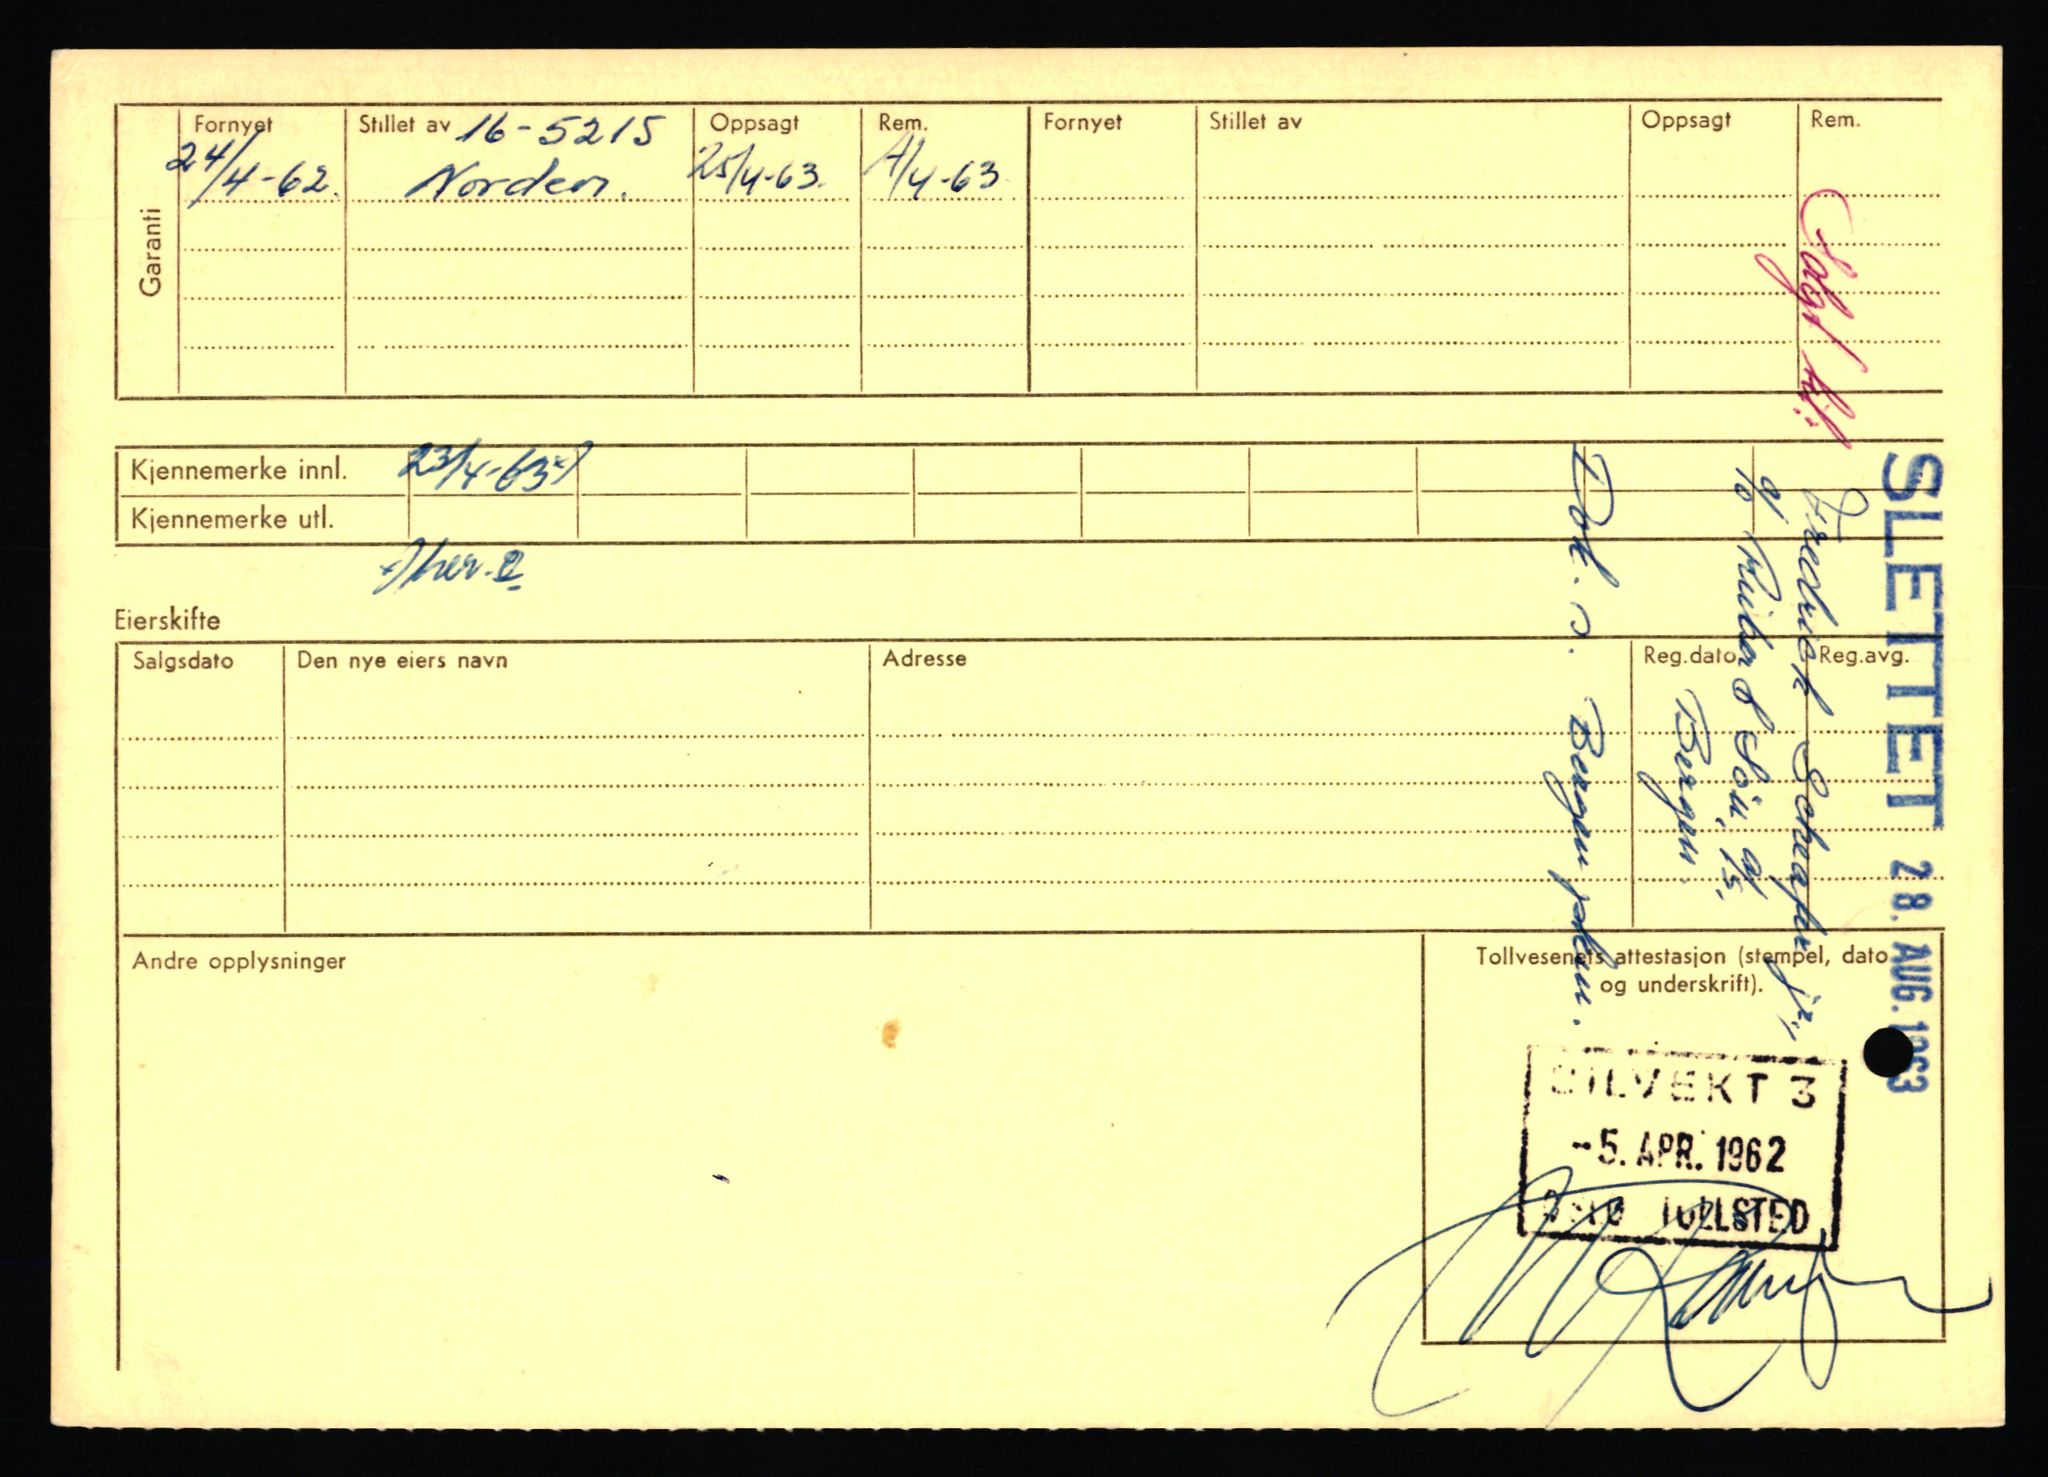 Garanti
Fornyet Stillet av Oppsagt Rem. Fornyet Stillet av Oppsagt Rem.
16-5215
24/4-62. Norden. 25/4-63. /4-63
Kjennemerke innl. 23/4-63
Kjennemerke utl.
Eierskifte
Salgsdato Den nye eiers navn Adresse Reg.dato Reg.avg.
Andre opplysninger
Tollvesenets attestasjon (stempel, dato
og underskrift).
BILVEKT 3
-5. APR. 1962
OSLO TOLLSTED
SLETTET 28. AUG. 1963
Solgt til:
Fredrick jr.,
% & Søn, A/S.
Bergen.
Dok. s. Bergen